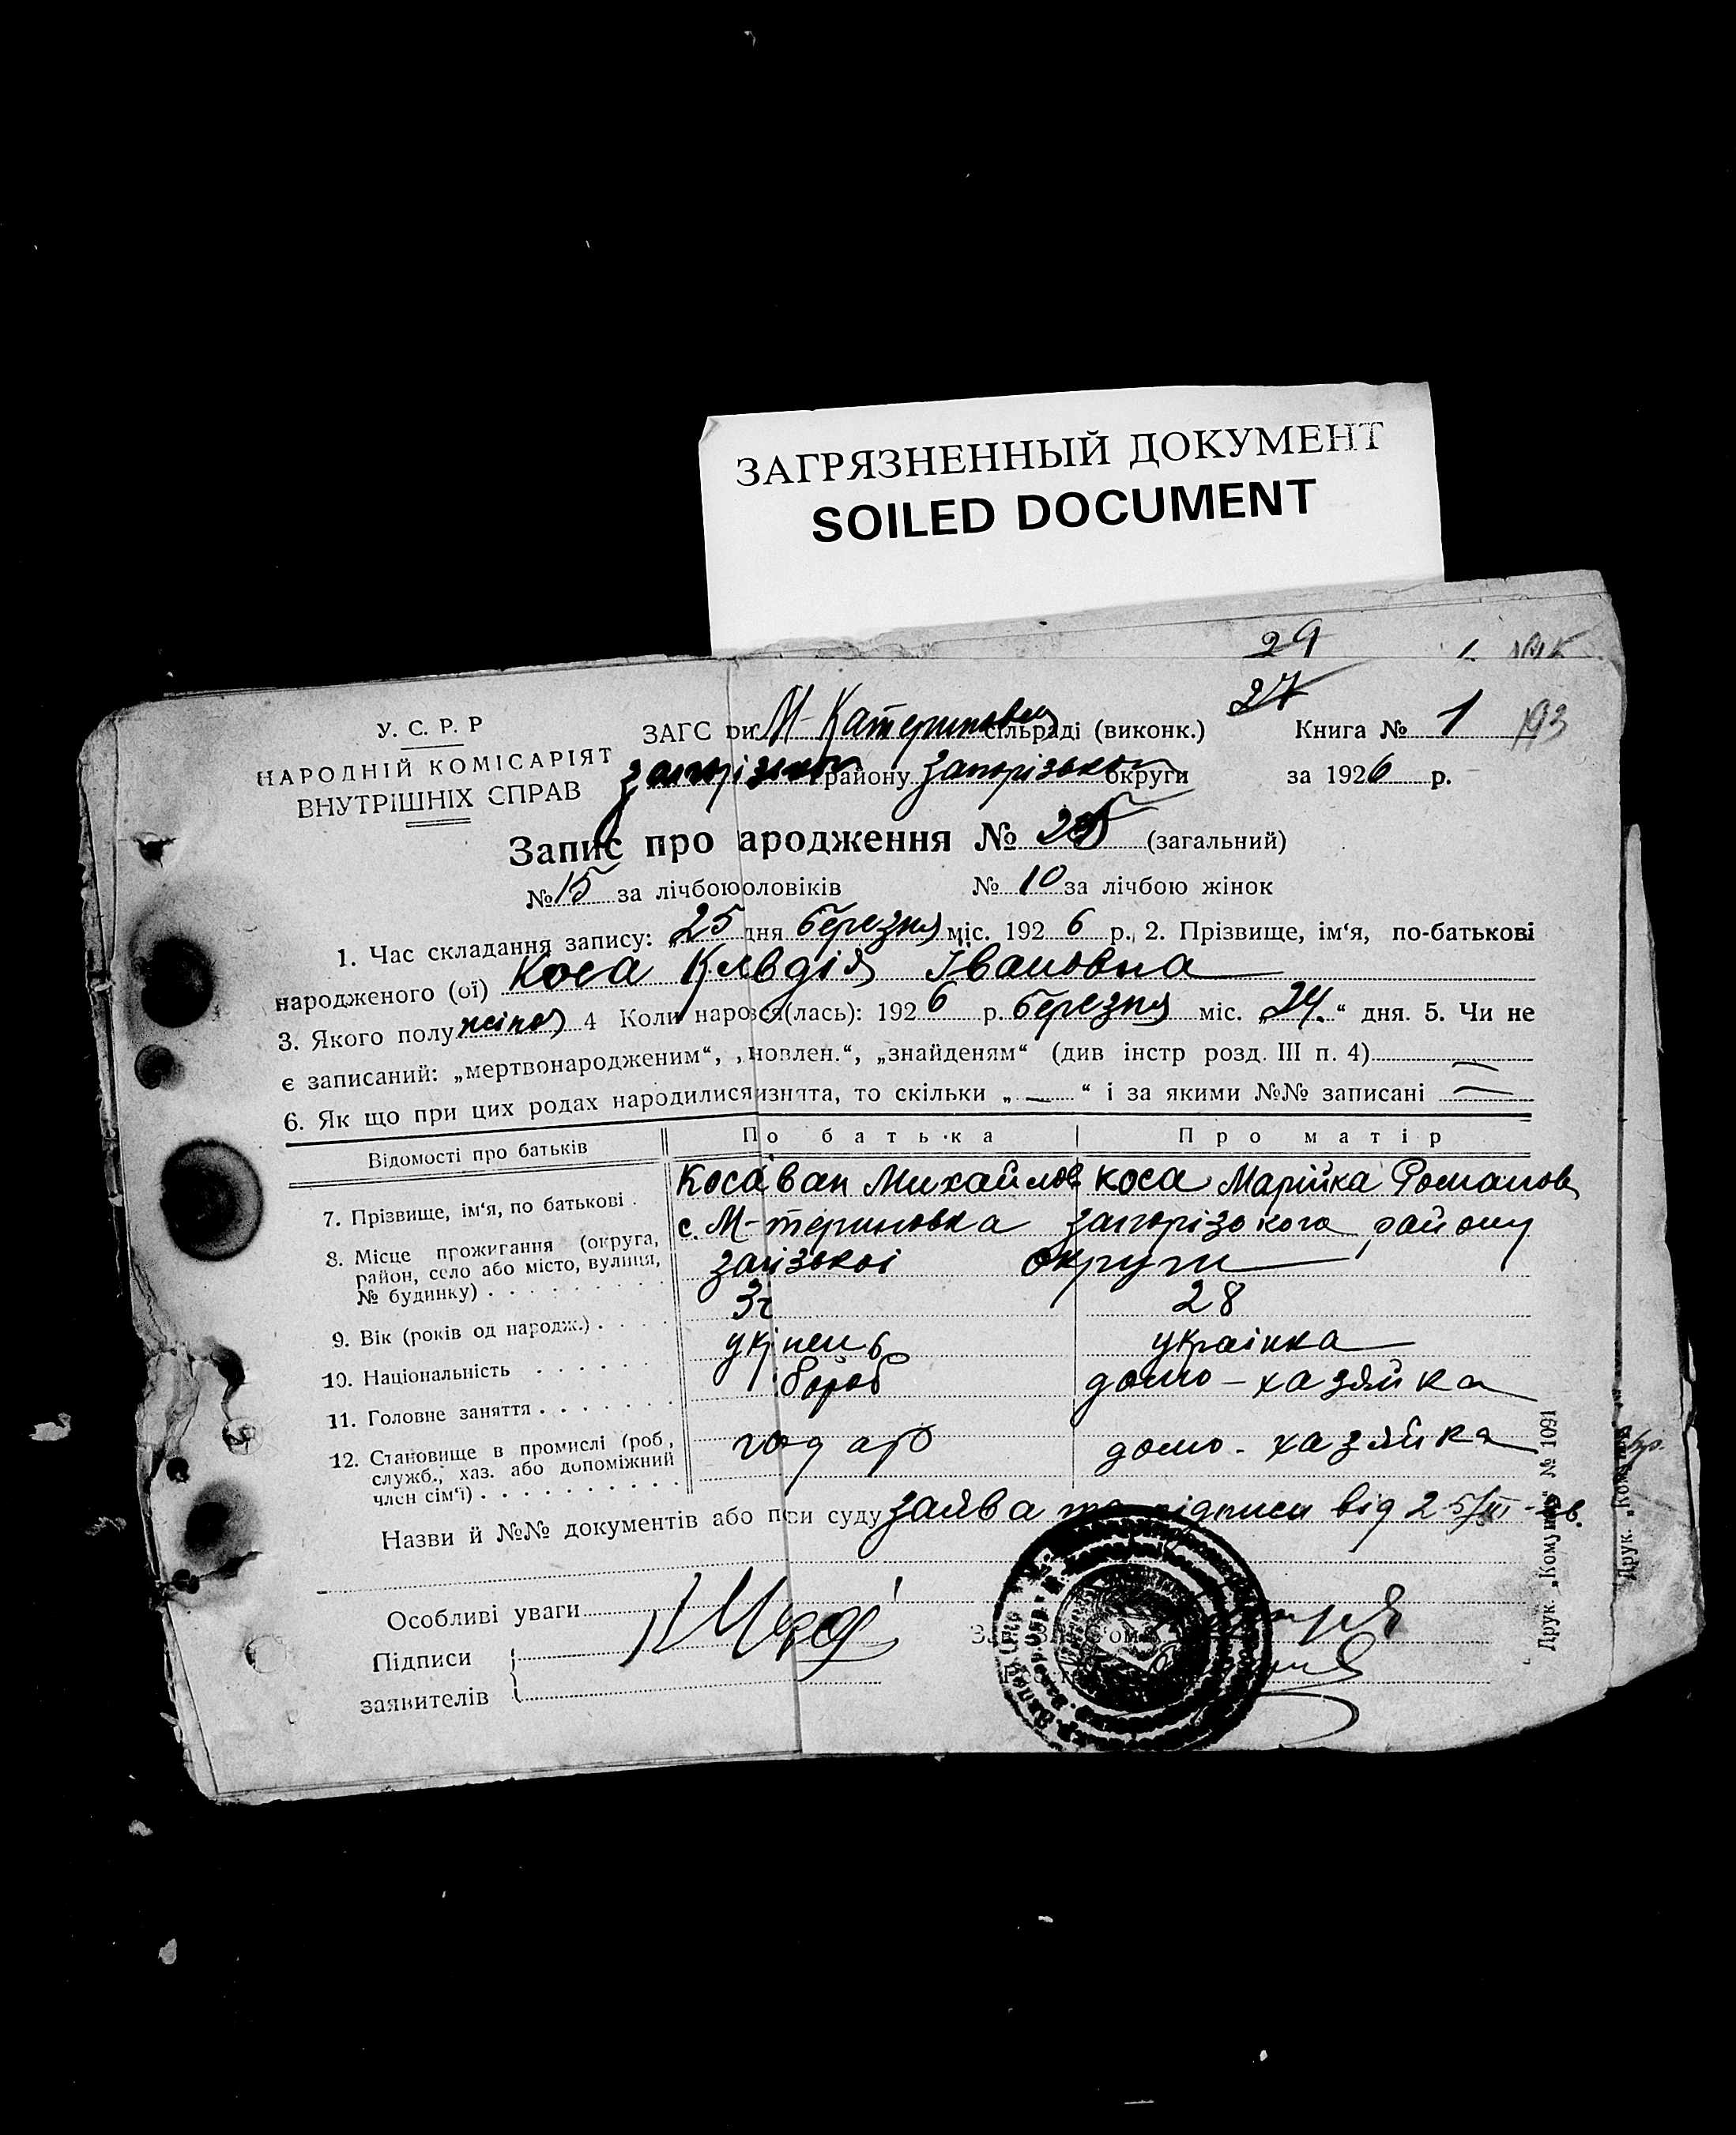 ЗАГРЯЗНЕННЫЙ ДОКУМЕНТ
SOILED DOCUMENT
29
27
У. С. Р. Р
НАРОДНІЙ КОМІСАРІЯТ
ВНУТРІШНІХ СПРАВ
ЗАГС ри М-Катериновці сільраді (виконк.)
Книга № 1 193
району Запорізької округи
за 1926 р.
Запис про ародження № 25 (загальний)
№ 15 за лічбоюоловіків № 10 за лічбою жінок
1. Час складання запису: „25 дня березня міс. 1926 р., 2. Прізвище, ім‘я, по-батькові
народженого (ої) Коса Клвдія Івановна
3. Якого полу жіноч 4 Коли народся(лась): 1926 р. березня міс. „24.“ дня. 5. Чи не
є записаний: „мертвонародженим“, „новлен.“, „знайденям“ (див інстр розд. III п. 4)
6. Як що при цих родах народилисяизнята, то скільки „—“ і за якими №№ записані
Відомості про батьків По батька Про матір
7. Прізвище, ім‘я, по батькові . Коса ван Михайлов Коса Марійка Романов
8. Місце прожигання (округа, район, село або місто, вулиця, № будинку) с. М-териновка запорізького району
заізької округи
9. Вік (років од народж.) 28
10. Національність укінець українка
11. Головне заняття хороб домо-хазяйка
12. Становище в промислі (роб, служб., хаз. або допоміжний член сім‘ї) домо-хазяйка
Назви й №№ документів або при суду заява та підписи від 25/III-26.
Особливі уваги
Підписи
заявителів
Друк. „Комунар“ № 1091
Друк. „Кому